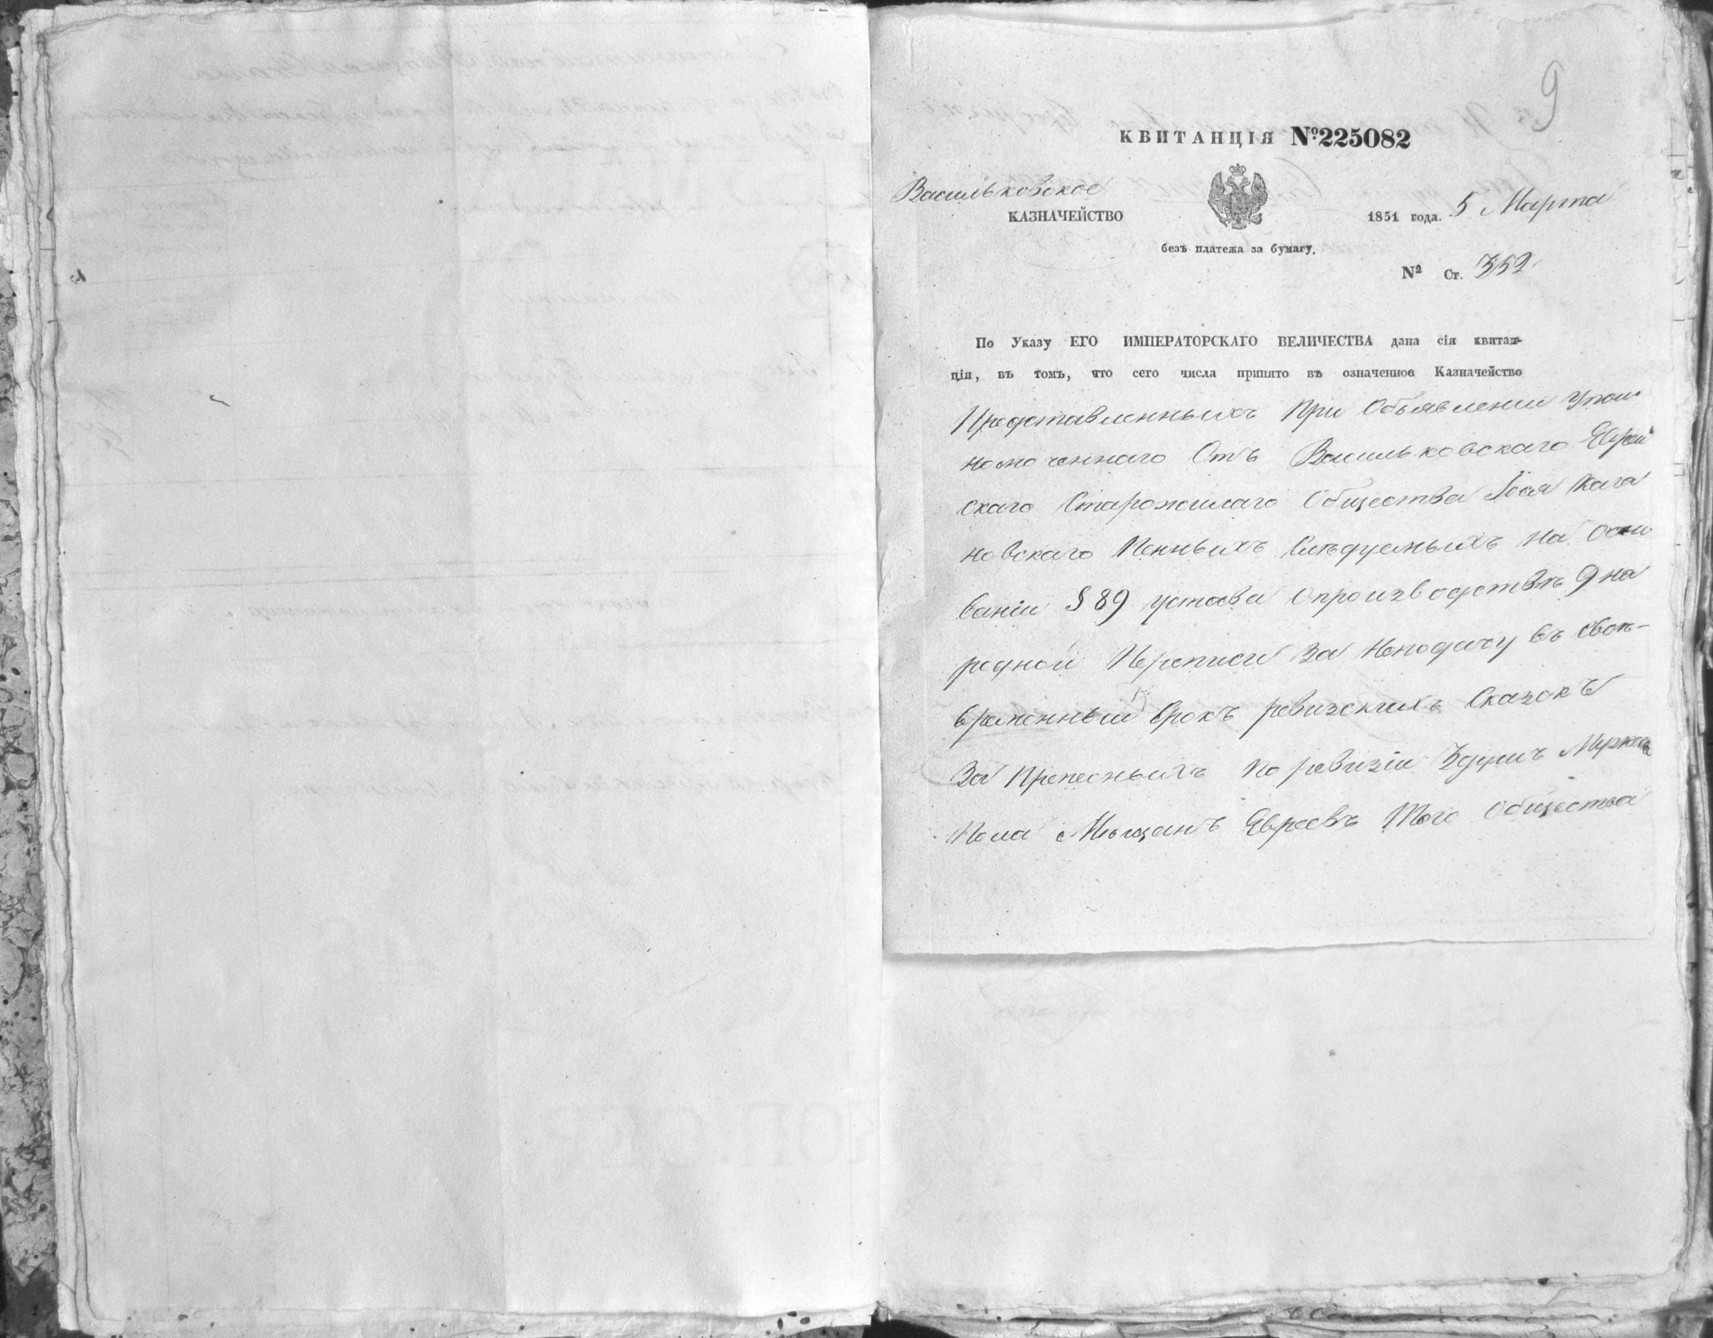 9
КВИТАНЦІЯ №225082
Васильковское
КАЗНАЧЕЙСТВО
1851 года. 5 Марта
безъ платежа за бумагу.
№ Ст. 352
По Указу ЕГО ИМПЕРАТОРСКАГО ВЕЛИЧЕСТВА дана сія квитан-
ція, въ томъ, что сего числа принято въ означенное Казначейство
Представленныхъ при Объявленіи упол
номоченнаго Отъ Васильковскаго Еврей
скаго Старожилаго Общества Іося Кага
новскаго Пенныхъ Слѣдуемыхъ на осно
ваніи § 89 устава о производствѣ 9 на
родной Переписи За Неподачу въ свое-
временный Срокъ ревизскихъ Сказокъ
За Пропесныхъ по ревизіи душъ Мужеска
Пола Мѣщанъ Евреевъ Того Общества